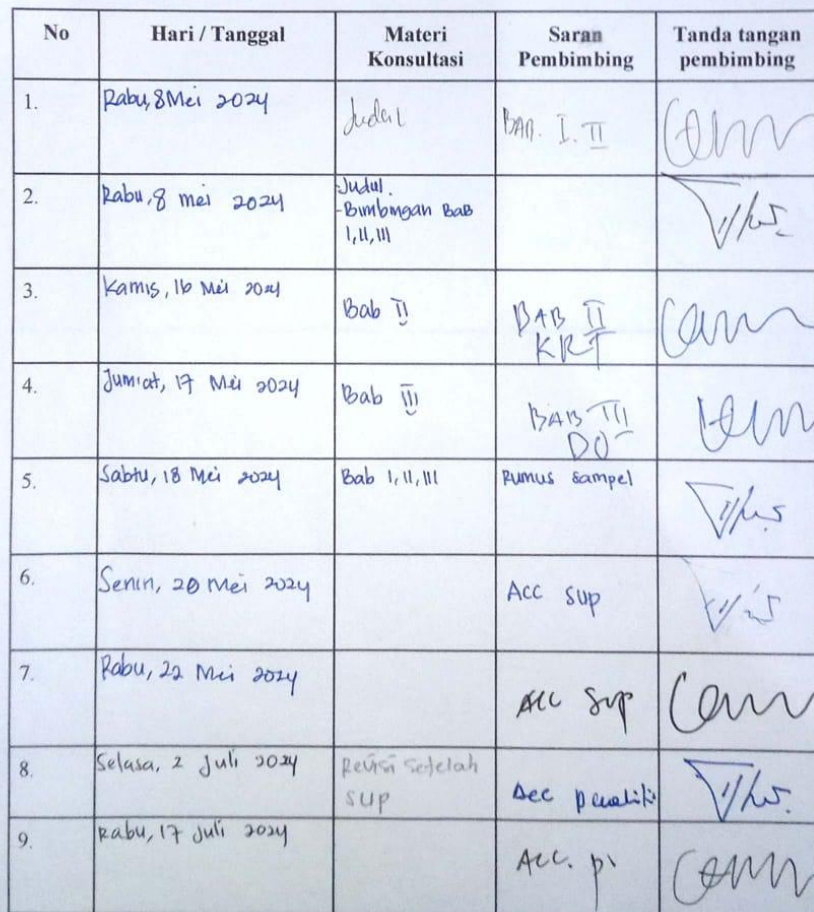 No Hari / Tanggal Materi Konsultasi Saran Pembimbing Tanda tangan pembimbing
1. Rabu, 8 Mei 2024 Judul BAB. I. II
2. Rabu, 8 mei 2024 Judul.
-Bimbingan BaB
I, II, III
3. Kamis, 16 Mei 2024 Bab II BAB II
KRT
4. Jum'at, 17 Mei 2024 Bab III BAB III
DO
5. Sabtu, 18 Mei 2024 Bab I, II, III Rumus sampel
6. Senin, 20 Mei 2024 Acc sup
7. Rabu, 22 Mei 2024 Acc Sup
8. Selasa, 2 Juli 2024 Revisi setelah
sup Acc
9. Rabu, 17 juli 2024 ACC.